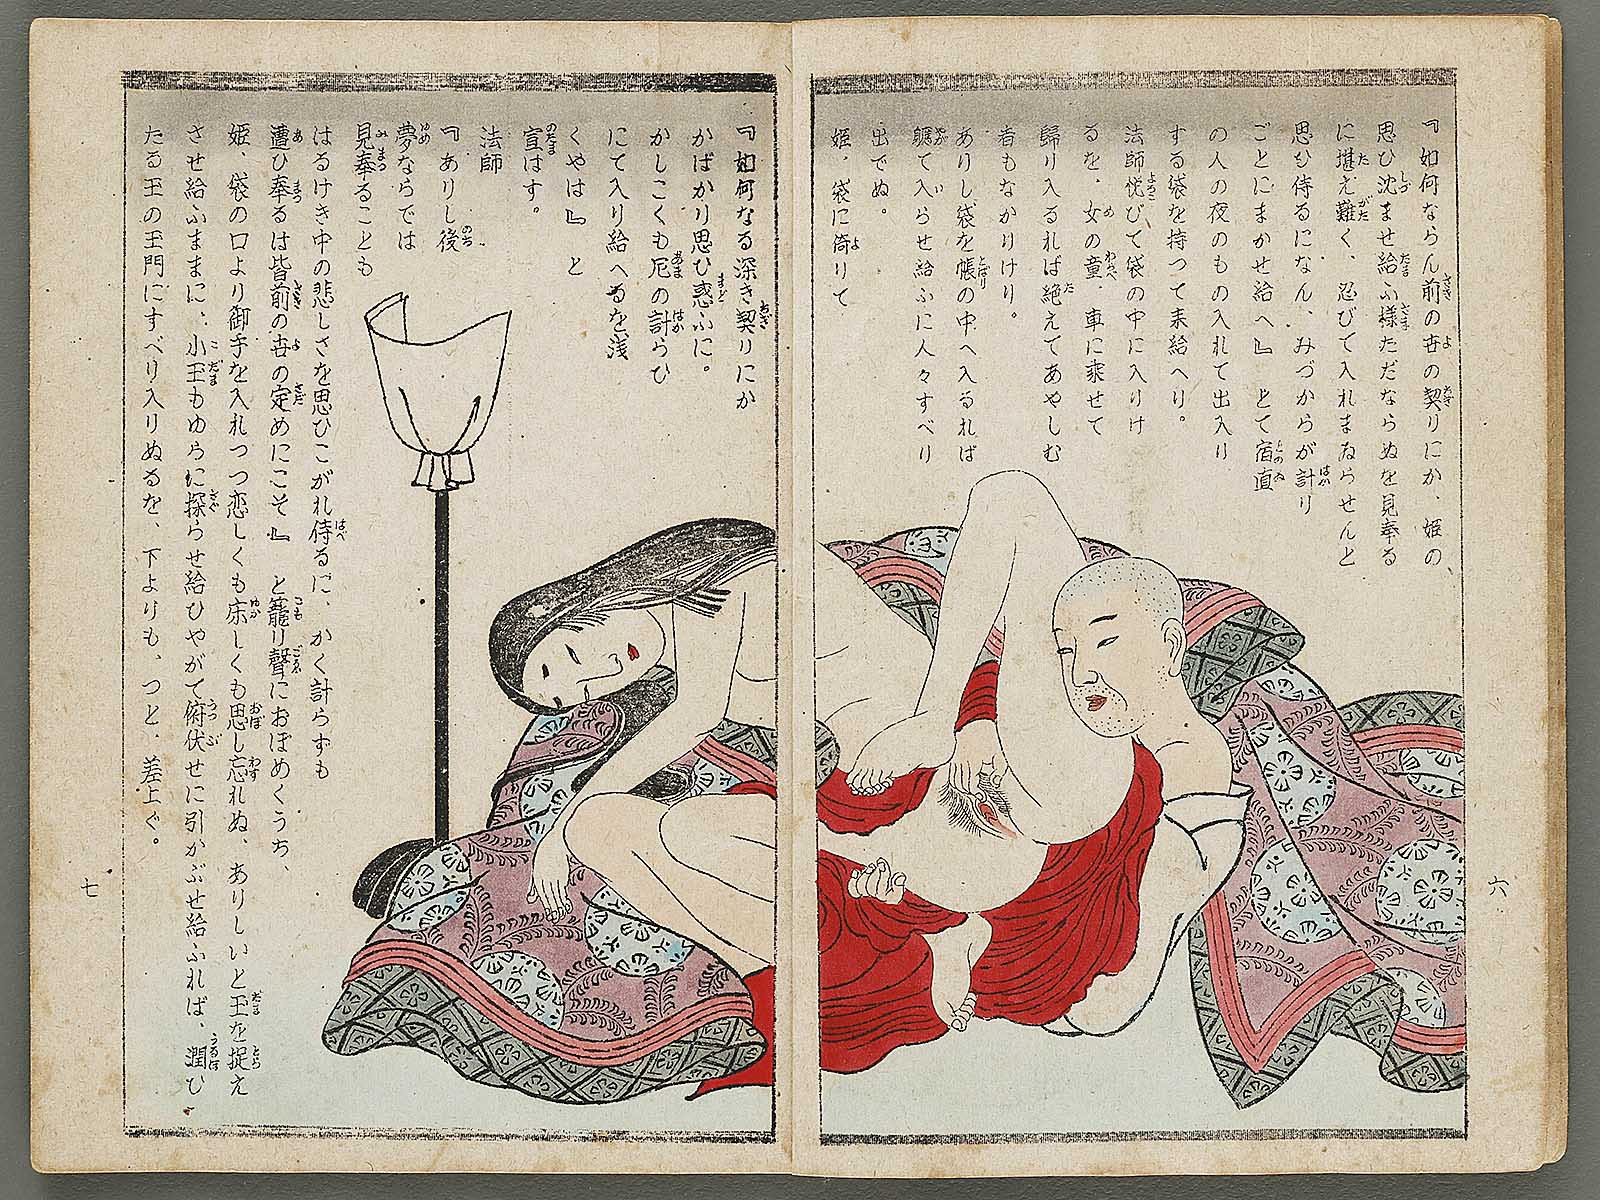 『如何ならん前の世の契りにか、姫の
思ひ沈ませ給ふ様ただならぬを見奉る
に堪え難く、忍びて入れまゐらせんと
思ひ侍るになん、みづからが計り
ごとにまかせ給へ』とて宿直
の人の夜のもの入れて出入り
する袋を持つて来給へり。
法師悦びて袋の中に入りけ
るを、女の童、車に乗せて
歸り入るれば絶えてあやしむ
者もなかりけり。
ありし袋を帳の中へ入るれば
軈て入らせ給ふに人々すべり
出でぬ。
姫、袋に倚りて
六
『如何なる深き契りにか
かばかり思ひ惑ふに。
かしこくも尼の計らひ
にて入り給へるを浅
くやは』と
宣はす。
法師
『ありし後
夢ならでは
見奉ることも
はるけき中の悲しさを思ひこがれ侍るに、かく計らずも
遭ひ奉るは皆前の世の定めにこそ』と籠り聲におぼめくうち、
姫、袋の口より御手を入れつつ恋しくも床しくも思し忘れぬ、ありしいと玉を捉え
させ給ふままに、小玉もゆらに探らせ給ひやがて俯伏せに引かぶせ給ふれば、潤ひ
たる玉の玉門にすべり入りぬるを、下よりも、つと、差上ぐ。
七